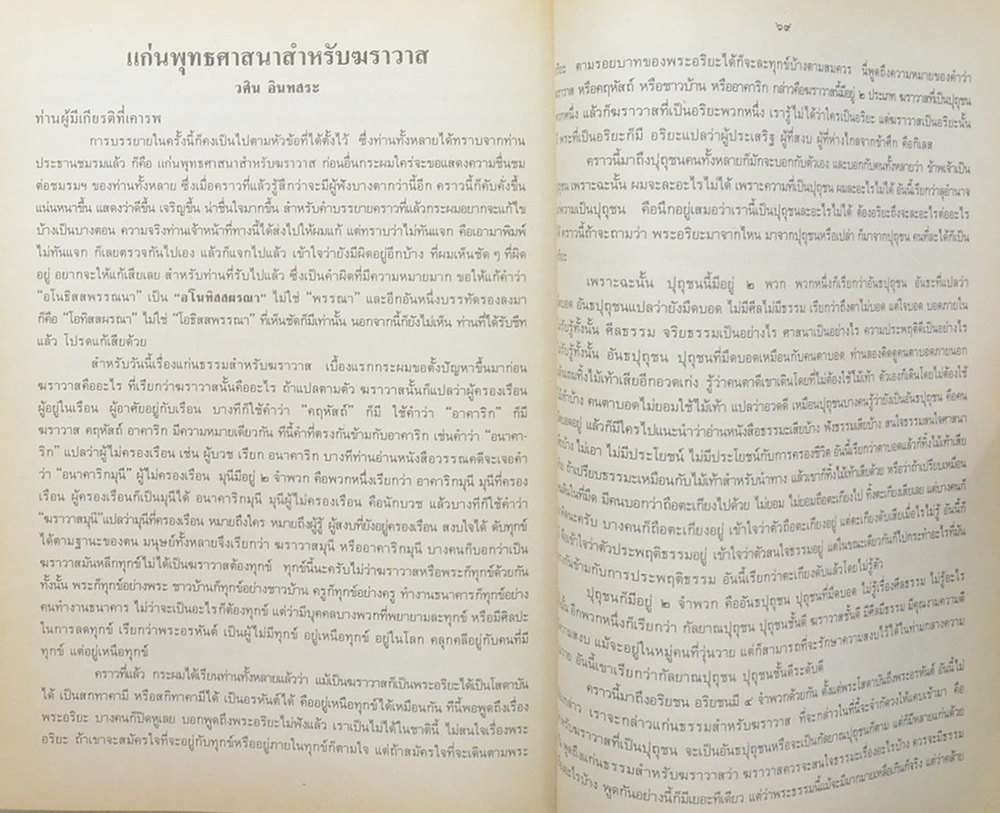 แก่นพุทธศาสนาสำหรับฆราวาส
วศิน อินทสระ
ท่านผู้มีเกียรติที่เคารพ
การบรรยายในครั้งนี้ก็คงเป็นไปตามหัวข้อที่ได้ตั้งไว้ ซึ่งท่านทั้งหลายได้ทราบจากท่าน
ประธานชมรมแล้ว ก็คือ แก่นพุทธศาสนาสำหรับฆราวาส ก่อนอื่นกระผมใคร่จะขอแสดงความชื่นชม
ต่อชมรมฯ ของท่านทั้งหลาย ซึ่งเมื่อคราวที่แล้วรู้สึกว่าจะมีผู้ฟังบางตากว่านี้อีก คราวนี้ก็คับคั่งขึ้น
แน่นหนาขึ้น แสดงว่าดีขึ้น เจริญขึ้น น่าชื่นใจมากขึ้น สำหรับคำบรรยายคราวที่แล้วกระผมอยากจะแก้ไข
บ้างเป็นบางตอน ความจริงท่านเจ้าหน้าที่ทางนี้ได้ส่งไปให้ผมแก้ แต่ทราบว่าไม่ทันแจก คือเอามาพิมพ์
ไม่ทันแจก ก็เลยตรวจกันไปเอง แล้วก็แจกไปแล้ว เข้าใจว่ายังมีผิดอยู่อีกบ้าง ที่ผมเห็นชัด ๆ ที่ผิด
อยู่ อยากจะให้แก้เสียเลย สำหรับท่านที่รับไปแล้ว ซึ่งเป็นคำผิดที่มีความหมายมาก ขอให้แก้คำว่า
“อโนธิสสพรรณนา” เป็น “อโนทิสสผรณา” ไม่ใช่ “พรรณา” และอีกอันหนึ่งบรรทัดรองลงมา
ก็คือ “โอทิสสผรณา” ไม่ใช่ “โอธิสสพรรณา” ที่เห็นชัดก็มีเท่านั้น นอกจากนี้ก็ยังไม่เห็น ท่านที่ได้รับชีท
แล้ว โปรดแก้เสียด้วย
สำหรับวันนี้เรื่องแก่นธรรมสำหรับฆราวาส เบื้องแรกกระผมขอตั้งปัญหาขึ้นมาก่อน
ฆราวาสคืออะไร ที่เรียกว่าฆราวาสนั้นคืออะไร ถ้าแปลตามตัว ฆราวาสนั้นก็แปลว่าผู้ครองเรือน
ผู้อยู่ในเรือน ผู้อาศัยอยู่กับเรือน บางทีก็ใช้คำว่า “คฤหัสถ์” ก็มี ใช้คำว่า “อาคาริก” ก็มี
ฆราวาส คฤหัสถ์ อาคาริก มีความหมายเดียวกัน ทีนี้คำที่ตรงกันข้ามกับอาคาริก เช่นคำว่า “อนาคา-
ริก” แปลว่าผู้ไม่ครองเรือน เช่น ผู้บวช เรียก อนาคาริก บางทีท่านอ่านหนังสือวรรณคดีจะเจอคำ
ว่า “อนาคาริกมุนี” ผู้ไม่ครองเรือน มุนีมีอยู่ ๒ จำพวก คือพวกหนึ่งเรียกว่า อาคาริกมุนี มุนีที่ครอง
เรือน ผู้ครองเรือนก็เป็นมุนีได้ อนาคาริกมุนี มุนีผู้ไม่ครองเรือน คือนักบวช แล้วบางทีก็ใช้คำว่า
“ฆราวาสมุนี”แปลว่ามุนีที่ครองเรือน หมายถึงใคร หมายถึงผู้รู้ ผู้สงบที่ยังอยู่ครองเรือน สงบใจได้ ดับทุกข์
ได้ตามฐานะของตน มนุษย์ทั้งหลายจึงเรียกว่า ฆราวาสมุนี หรืออาคาริกมุนี บางคนก็บอกว่าเป็น
ฆราวาสมันหลีกทุกข์ไม่ได้เป็นฆราวาสต้องทุกข์ ทุกข์นี้นะครับไม่ว่าฆราวาสหรือพระก็ทุกข์ด้วยกัน
ทั้งนั้น พระก็ทุกข์อย่างพระ ชาวบ้านก็ทุกข์อย่างชาวบ้าน ครูก็ทุกข์อย่างครู ทำงานธนาคารก็ทุกข์อย่าง
คนทำงานธนาคาร ไม่ว่าจะเป็นอะไรก็ต้องทุกข์ แต่ว่ามีบุคคลบางพวกที่พยายามละทุกข์ หรือมีศิลปะ
ในการลดทุกข์ เรียกว่าพระอรหันต์ เป็นผู้ไม่มีทุกข์ อยู่เหนือทุกข์ อยู่ในโลก คลุกคลีอยู่กับคนที่มี
ทุกข์ แต่อยู่เหนือทุกข์
คราวที่แล้ว กระผมได้เรียนท่านทั้งหลายแล้วว่า แม้เป็นฆราวาสก็เป็นพระอริยะได้เป็นโสดาบัน
ได้ เป็นสกทาคามี หรือสกิทาคามีได้ เป็นอรหันต์ได้ คืออยู่เหนือทุกข์ได้เหมือนกัน ทีนี้พอพูดถึงเรื่อง
พระอริยะ บางคนก็ปิดหูเลย บอกพูดถึงพระอริยะไม่ฟังแล้ว เราเป็นไม่ได้ในชาตินี้ ไม่สนใจเรื่องพระ
อริยะ ถ้าเขาจะสมัครใจที่จะอยู่กับทุกข์หรืออยู่ภายในทุกข์ก็ตามใจ แต่ถ้าสมัครใจที่จะเดินตามพระ
๖๙
ตามรอยบาทของพระอริยะได้ก็จะละทุกข์บ้างตามสมควร นี่พูดถึงความหมายของคำว่า
หรือคฤหัสถ์ หรือชาวบ้าน หรืออาคาริก กล่าวคือฆราวาสนี้มีอยู่ ๒ ประเภท ฆราวาสที่เป็นปุถุชน
พวกหนึ่ง แล้วก็ฆราวาสที่เป็นอริยะพวกหนึ่ง เรารู้ไม่ได้ว่าใครเป็นอริยะ แต่ฆราวาสเป็นอริยะนั้น
มี พระที่เป็นอริยะก็มี อริยะแปลว่าผู้ประเสริฐ ผู้ที่สงบ ผู้ที่ห่างไกลจากข้าศึก คือกิเลส
คราวนี้มาถึงปุถุชนคนทั้งหลายก็มักจะบอกกับตัวเอง และบอกกับคนทั้งหลายว่า ข้าพเจ้าเป็น
เพราะฉะนั้น ผมจะละอะไรไม่ได้ เพราะความที่เป็นปุถุชน ผมละอะไรไม่ได้ อันนี้เรียกว่าลุอำนาจ
ความเป็นปุถุชน คือนึกอยู่เสมอว่าเรานี้เป็นปุถุชนละอะไรไม่ได้ ต้องอริยะถึงจะละอะไรต่ออะไร
คราวนี้ถ้าจะถามว่า พระอริยะมาจากไหน มาจากปุถุชนหรือเปล่า ก็มาจากปุถุชน คนที่ละได้ก็เป็น
เพราะฉะนั้น ปุถุชนนี้มีอยู่ ๒ พวก พวกหนึ่งก็เรียกว่าอันธปุถุชน อันธะที่แปลว่า
อันธปุถุชนแปลว่ายังมืดบอด ไม่มีศีลไม่มีธรรม เรียกว่าถึงตาไม่บอด แต่ใจบอด บอดภายใน
ศีลธรรม จริยธรรมเป็นอย่างไร ศาสนาเป็นอย่างไร ความประพฤติดีเป็นอย่างไร
อันธปุถุชน ปุถุชนที่มืดบอดเหมือนกับคนตาบอด ท่านลองคิดดูคนตาบอดภายนอก
ทิ้งไม้เท้าเสียอีกอวดเก่ง รู้ว่าคนตาดีเขาเดินโดยที่ไม่ต้องใช้ไม้เท้า ตัวเองก็เดินโดยไม่ต้องใช้
คนตาบอดไม่ยอมใช้ไม้เท้า แปลว่าอวดดี เหมือนปุถุชนบางคนรู้ว่ายังเป็นอันธปุถุชน คือคน
แล้วก็มีใครไปแนะนำว่าอ่านหนังสือธรรมะเสียบ้าง ฟังธรรมเสียบ้าง สนใจธรรมสนใจศาสนา
ไม่เอา ไม่มีประโยชน์ ไม่มีประโยชน์กับการครองชีวิต อันนี้เรียกว่าตาบอดแล้วก็ทิ้งไม้เท้าเสีย
ถ้าเปรียบธรรมะเหมือนกับไม้เท้าสำหรับนำทาง แล้วเขาก็ทิ้งไม้เท้าเสียด้วย หรือว่าถ้าเปรียบเหมือน
เดินในที่มืด มีคนบอกว่าถือตะเกียงไปด้วย ไม่ยอม ไม่ยอมถือตะเกียงไป ทิ้งตะเกียงเสียเลย แต่บางคนก็
บางคนก็ถือตะเกียงอยู่ เข้าใจว่าตัวถือตะเกียงอยู่ แต่ตะเกียงดับเสียเมื่อไรไม่รู้ อันนี้ก็
เข้าใจว่าตัวประพฤติธรรมอยู่ เข้าใจว่าตัวสนใจธรรมอยู่ แต่ในขณะเดียวกันก็ไปกระทำอะไรที่มัน
ข้ามกับการประพฤติธรรม อันนี้เรียกว่าตะเกียงดับแล้วโดยไม่รู้ตัว
ปุถุชนก็มีอยู่ ๒ จำพวก คืออันธปุถุชน ปุถุชนที่มืดบอด ไม่รู้เรื่องศีลธรรม ไม่รู้อะไร
อีกพวกหนึ่งก็เรียกว่า กัลยาณปุถุชน ปุถุชนชั้นดี ฆราวาสชั้นดี มีศีลมีธรรม มีคุณงามความดี
ความสงบ แม้จะอยู่ในหมู่คนที่วุ่นวาย แต่ก็สามารถที่จะรักษาความสงบไว้ได้ในท่ามกลางความ
อันนี้เขาเรียกว่ากัลยาณปุถุชน ปุถุชนชั้นดีระดับดี
คราวนี้มาถึงอริยชน อริยชนมี ๔ จำพวกด้วยกัน ตั้งแต่พระโสดาบันถึงพระอรหันต์ อันนี้ไม่
เราจะกล่าวแก่นธรรมสำหรับฆราวาส ที่จะกล่าวในที่นี้ก็จะจำกัดวงให้แคบเข้ามา คือ
ฆราวาสที่เป็นปุถุชน จะเป็นอันธปุถุชนหรือจะเป็นกัลยาณปุถุชนก็ตาม แต่ก็มีหลายแก่นด้วย
พูดถึงแก่นธรรมสำหรับฆราวาสว่า ฆราวาสควรจะสนใจธรรมะเรื่องอะไรบ้าง ควรจะมีธรรม
อะไรบ้าง พูดกันอย่างนี้ก็มีเยอะทีเดียว แต่ว่าพระธรรมนี้แม้จะมีมากมายเหลือเกินก็จริง แต่ว่าคล้าย